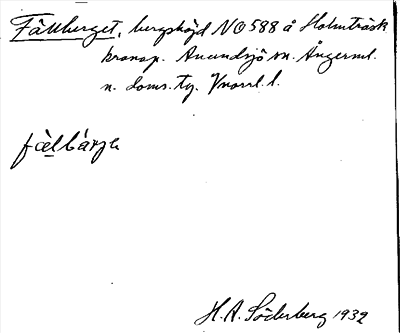 Fällberget, bergshöjd NO 588 å Holmträsk
kronop. Anundsjö sn. Ångerml.
n. Doms. tg. Vnorrl. l.
fä̀lbárjə
H. A. Söderberg 1932